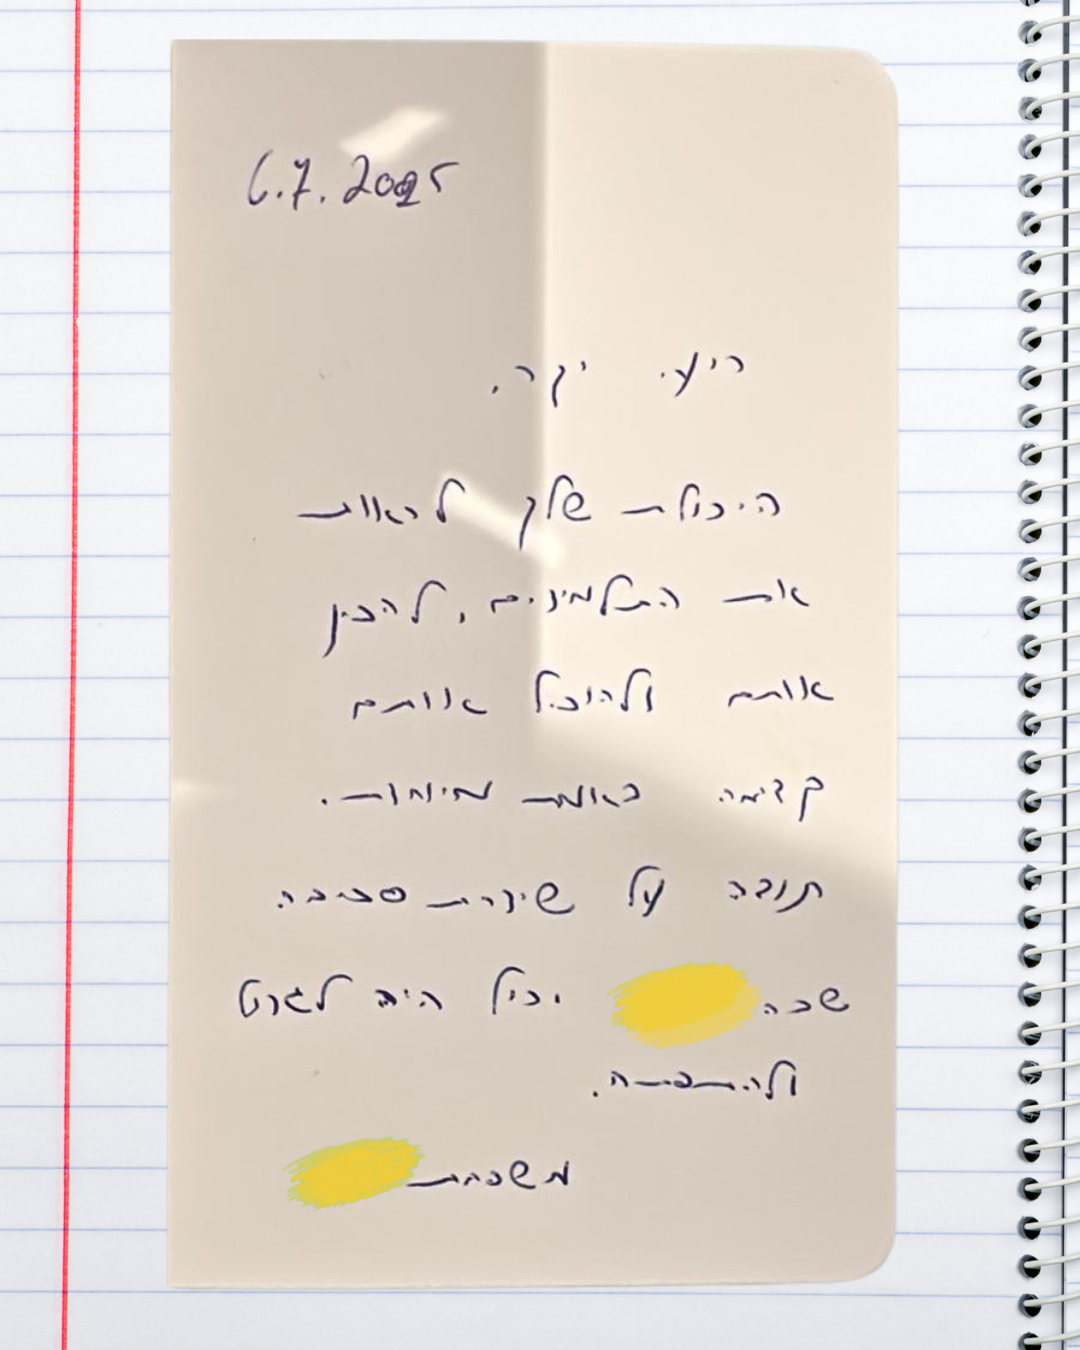 6.7.2025
יקר.
היכולת שלך לראות
את התלמידים, להבין
אותם ולהוביל אותם
קדימה באמת מיוחדת.
תודה על שיצרת סביבה
שבה יכול היה לגדול
ולהתפתח.
משפחת